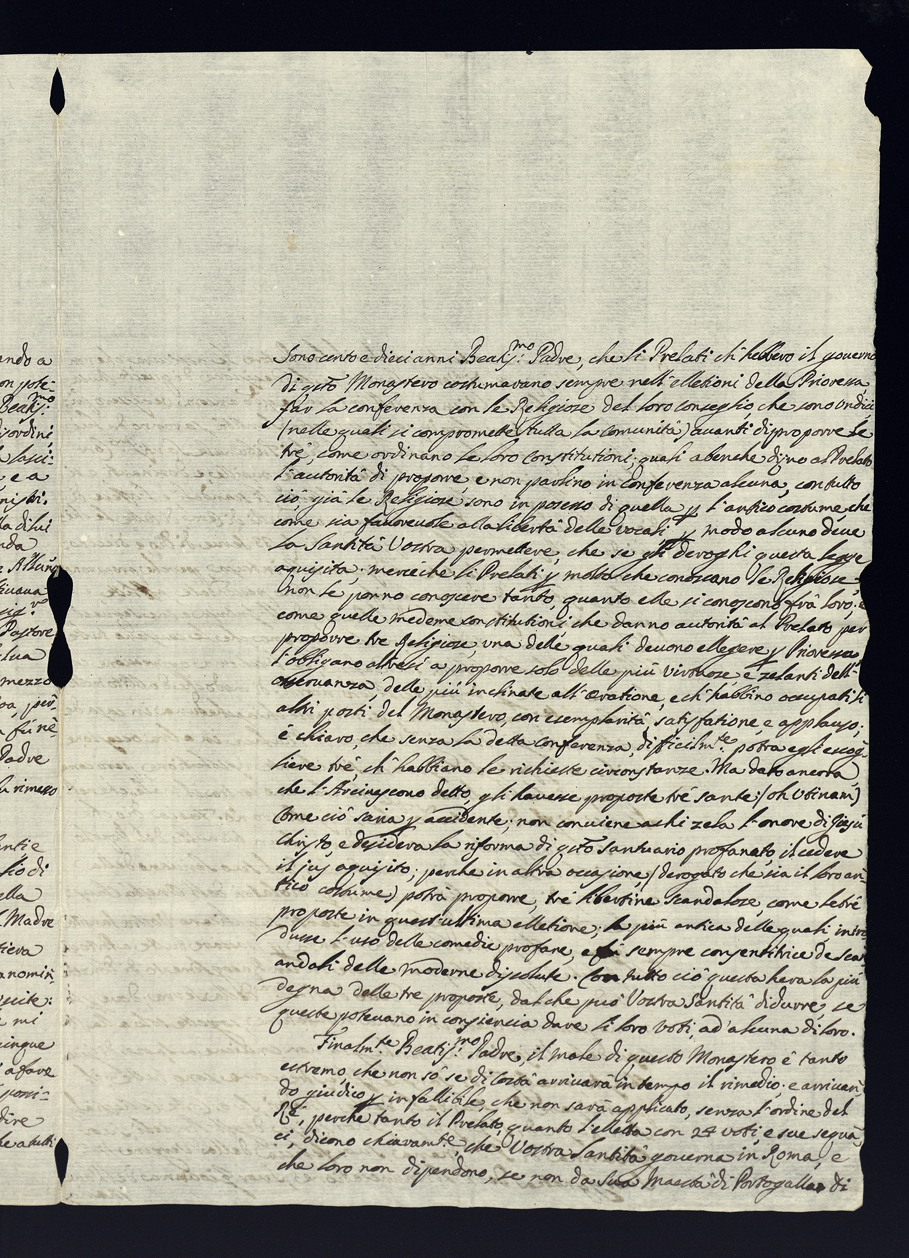 Sono cento e dieci anni Beatiss.mo Padre, che li Prelati ch'hebbero il governo
di q.to Monastero costumavano sempre nell'elletioni della Prioressa
far la conferenza con le Religiose del loro conseglio, che sono undici
(nelle quali si compromette tutta la Comunità) avanti di proporre le
tré, come ordinano le loro Constitutioni; quali abenche dijno al Prelato
l'autorità di proporre e non parlino in conferenza alcuna, con tutto
ciò già le Religiose sono in possesso di quella p l'antico costume che
come sia favorevole alla libertà delle vocali p modo alcuno deve
la Santità Vostra permettere, che se gli deroghi questa legge
aquisita; mercèche li Prelati p molto che conoscano le Religiose
non le ponno conoscere tanto, quanto elle si conoscono frà loro; e
come quelle medeme constitutioni che danno autorità al Prelato per
proporre tre Religiose, una delle quali devono ellegere p Prioressa,
l'obligano altresi a proporre solo delle più virtuoze, e zelanti dell'
osservanza, delle più inclinate all'Oratione, e ch'habbino occupati li
altri posti del Monastero, con esemplarità, satisfatione, e applauso;
è chiaro, che senza la detta conferenza, dificilm.te potra egli escog-
liere tré, ch'habbiano le richieste circonstanze. Ma dato ancora
che l'Arcivescono detto, gli havesse proposte tré sante; (oh Utinam)
Come ciò saria p accidente; non conviene a chi zela l'onore di Giesù
Christo, e desidera la riforma di q.to santuario profanato, il cedere
il jus aquisito; perche in altra occasione, (derogato che sia il loro an-
tico costume) potrà proporre, tré libertine scandaloze, come le tré
proposte in quest'ultima elletione; la più antica delle quali intro-
dusse l'uso delle comedie profane, e fù sempre consentitrice de scan-
andali delle moderne disolute. Con tutto ciò questa hera la più
degna delle tre proposte, dal che può Vostra Santità didurre, se
queste potevano in consienza dare li loro voti, ad'alcuna di loro.
Finalm.te Beatiss.mo Padre, il male di questo Monastero è tanto
estremo che non sò se di costà arrivarà in tempo il rimedio; e arrivan-
do giudico p infallibile, che non sarà applicato, senza l'ordine del
Rè, perche tanto il Prelato, quanto l'eletta con 24 voti, e sue segua-
ci, dicono chiaram.te che Vostra Santità governa in Roma, e
che loro non dipendono, se non da Sua Maestà di Portogallo di